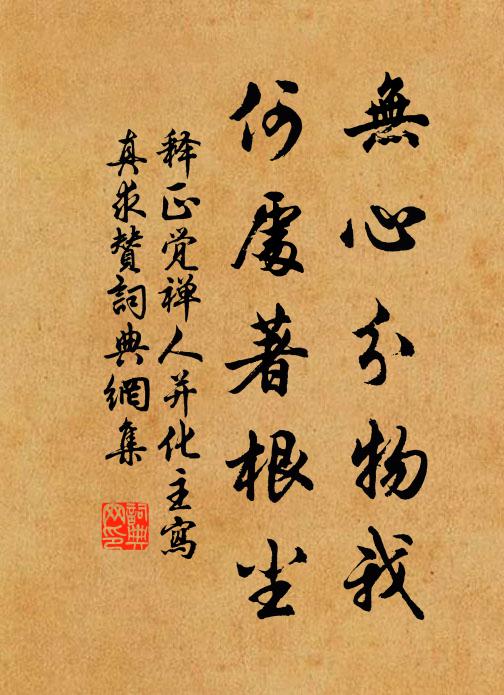 無心分物我
何處著根尘
释正觉禅人并化主寫
真求贊詞典網集
詞典网印